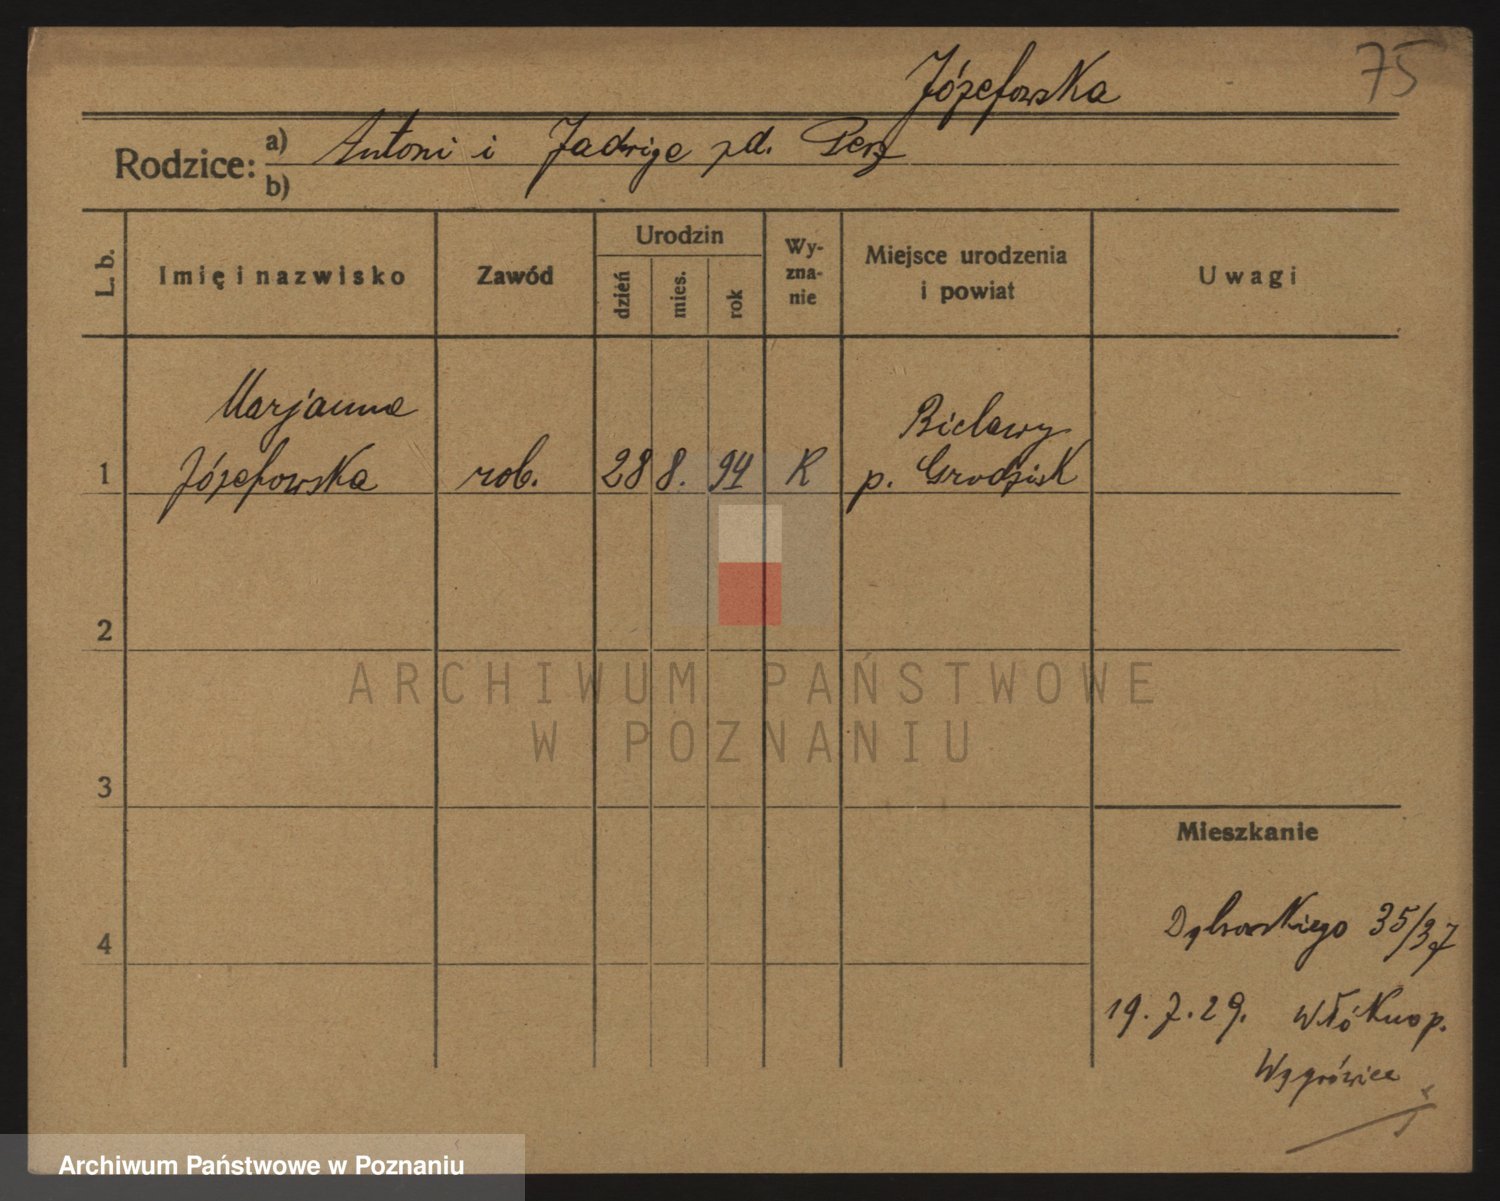 75
Józefowska
Rodzice: a) Antoni i Jadwiga zd. Perz
b)
L. b.
Imię i nazwisko
Zawód
Urodzin
dzień
mies.
rok
Wy-
zna-
nie
Miejsce urodzenia
i powiat
Uwagi
Marjanna
Józefowska
1
rob.
28
8.
94
R
Bielawy
p. Grodzisk
2
ARCHIWUM PAŃSTWOWE
W POZNANIU
3
Mieszkanie
4
Dąbrowskiego 35/37
19.7.29. Włókno p.
Wągrówiec
Archiwum Państwowe w Poznaniu